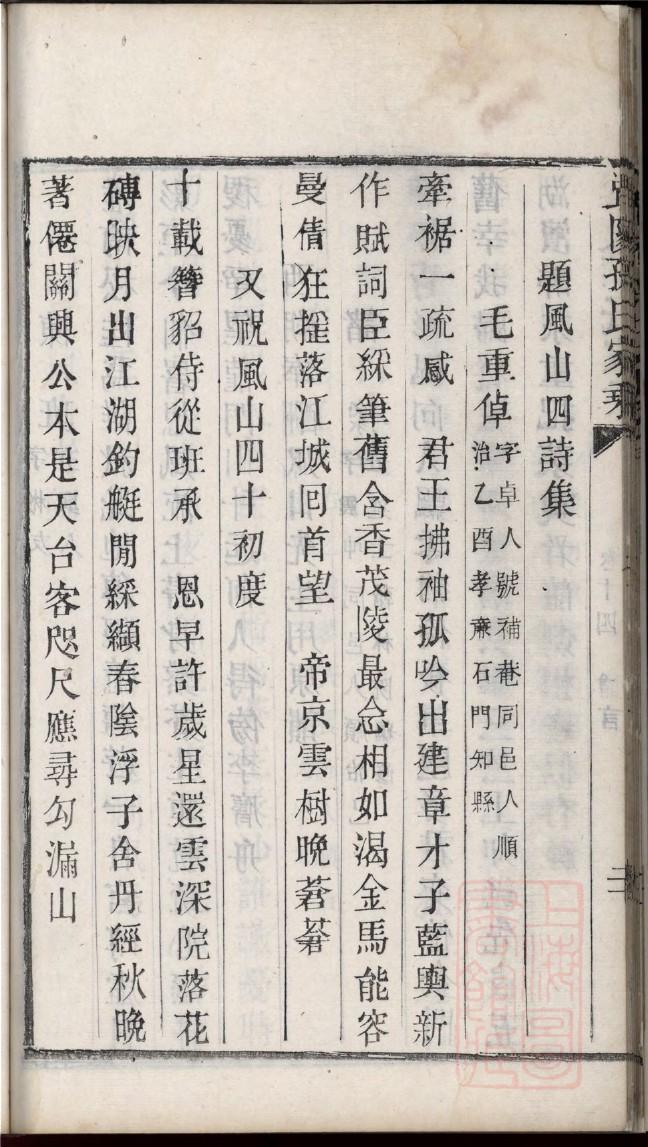 孫氏家乘
題風山四詩集
毛重倬字卓人號補菴同邑人順
治乙酉孝廉石門知縣
牽裾一疏感 君王拂袖孤吟出建章才子藍輿新
作賦詞臣綵筆舊含香茂陵最念相如渴金馬能容
曼倩狂摧落江城囘首望 帝京雲樹晚蒼蒼
又祝風山四十初度
十載簪貂侍從班承 恩早許歲星還雲深院落花
磚映月出江湖釣艇閒綵纈春陰浮子舍丹經秋晚
著僊關興公本是天台客咫尺應尋勾漏山